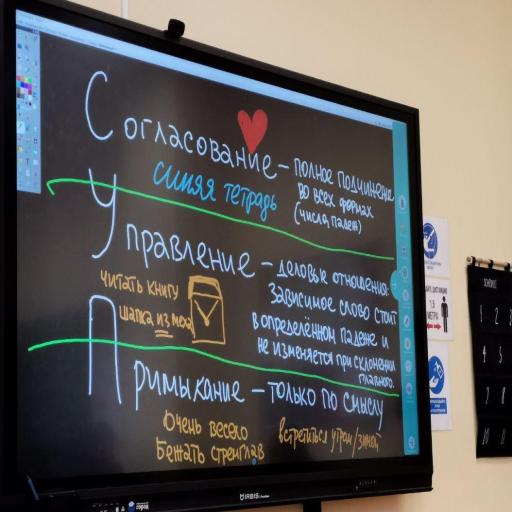 Согласование – полное подчинение
во всех формах
(числа, падеж)
синяя тетрадь
Управление – деловые отношения:
зависимое слово стоит
в определённом падеже и
не изменяется при склонении
главного.
читать книгу
шапка из меха
Примыкание – только по смыслу
Очень весело
Бежать стремглав
встретиться утром/зимой
IRBIS
1,5
МЕТРА
1 2 3
4 5
7 8